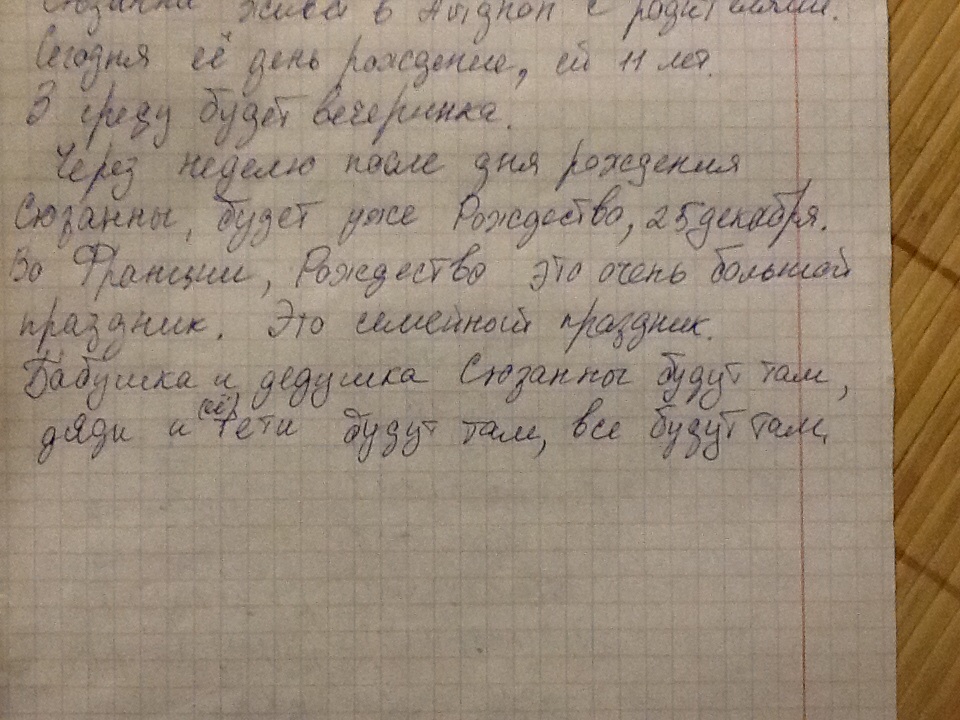 Сюзанна живёт в Авиньон с родителями.
Сегодня её день рождение, ей 11 лет.
В среду будет вечеринка.
Через неделю после дня рождения
Сюзанны, будет уже Рождество, 25 декабря.
Во Франции, Рождество это очень большой
праздник. Это семейный праздник.
Бабушка и дедушка Сюзанны будут там,
дяди и (её) тёти будут там, все будут там.